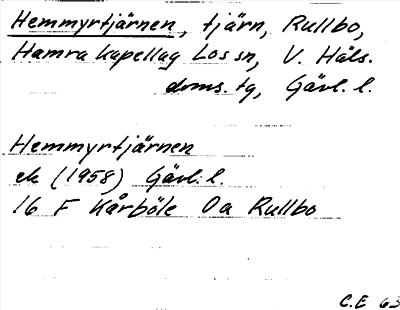 Hemmyrtjärnen, tjärn, Rullbo,
Hamra kapellag Los sn, V. Häls.
doms. tg, Gävl. l.
Hemmyrtjärnen
ek (1958) Gävl. l.
16 F Kårböle 0a Rullbo
C.E 63